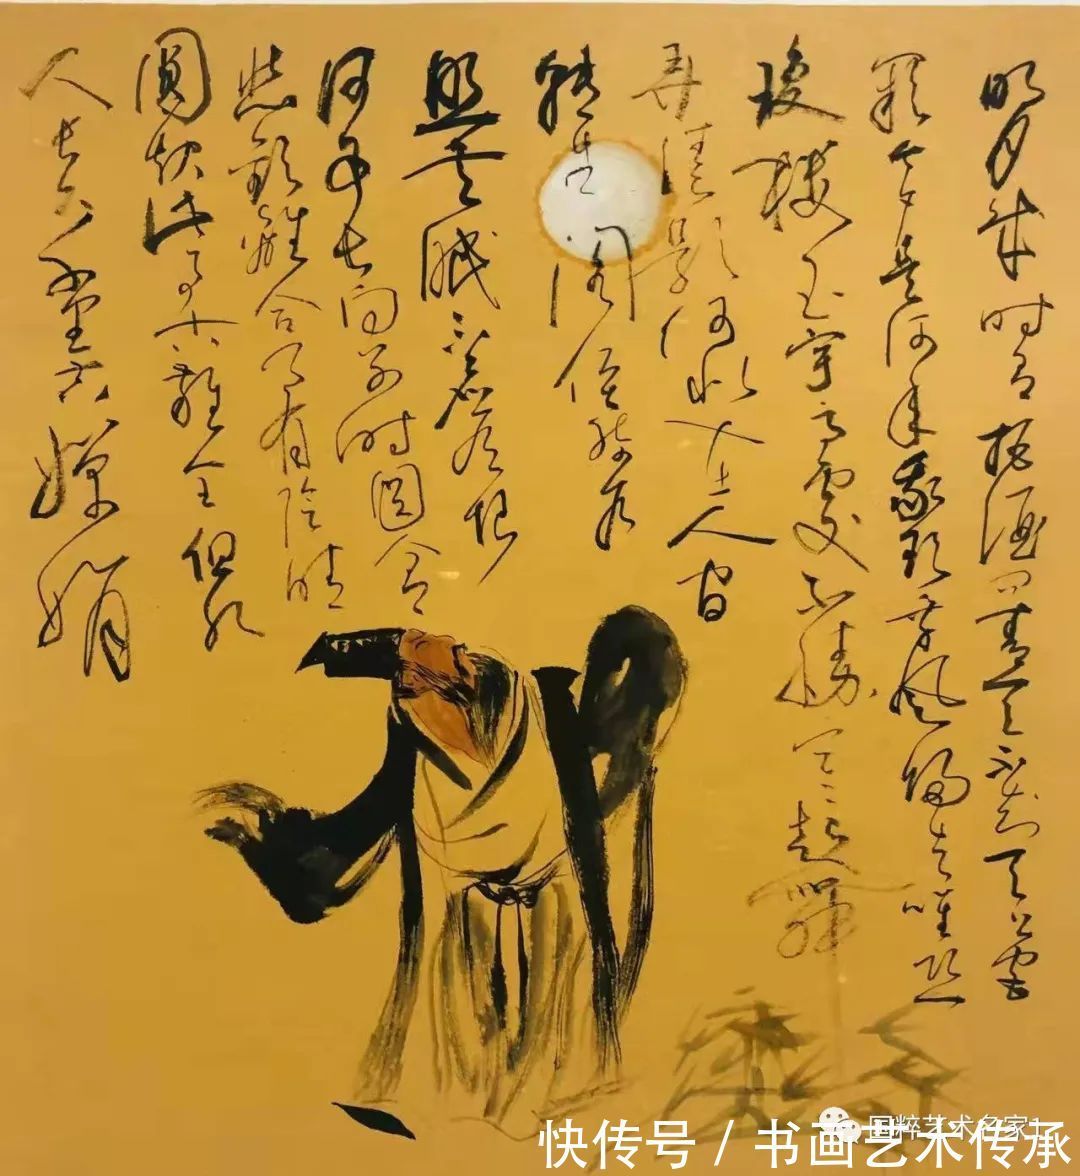 明月幾时有把酒问青天不知天上宫
阙今夕是何年我欲乘风歸去唯恐
瓊楼玉宇高處不勝寒起舞
弄清影何似在人间
转朱阁低绮户
照无眠不应有恨
何事长向别时圆人有
悲歡離合月有陰晴
圆缺此事古難全但願
人长久千里共婵娟
国粹艺术名家1
快传号 / 书画艺术传承